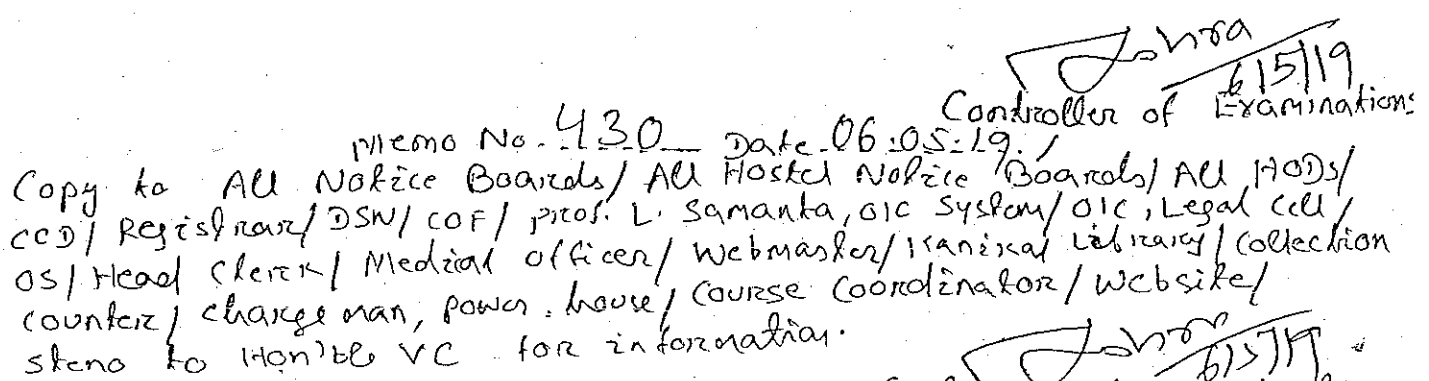 6/5/19
Controller of Examinations
Memo No. 430 Date. 06.05.19./
Copy to All Notice Boards/ All Hostel Notice Boards/ All HODs/
CCD/ Registrar/ DSW/ COF/ Prof. L. Samanta, OIC System/ OIC, Legal Cell/
OS/ Head Clerk/ Medical officer/ Webmaster/ Kanikal Library/ Collection
counter/ charge man, power. house/ Course Coordinator/ Website/
steno to Hon'ble VC for information.
6/5/19